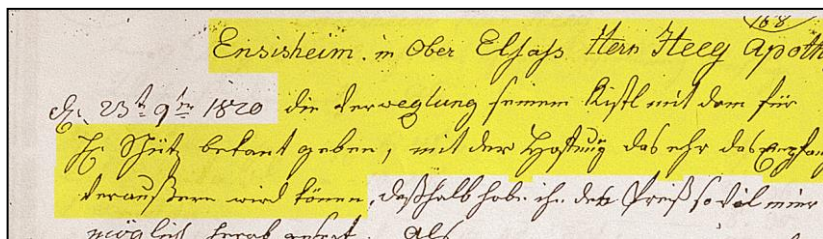 168
Ensisheim. in Ober Elsass Hern Heeg Apoth
d: 23t 9ber 1820 die verweglung seinem Kistl mit dem für
H: Schütz bekant geben, mit der Hofnung das ehr das Empfan
veraußern wird könen, deßhalb hab ihn den Preiß so viel mier
möglich herab gesezt. Als